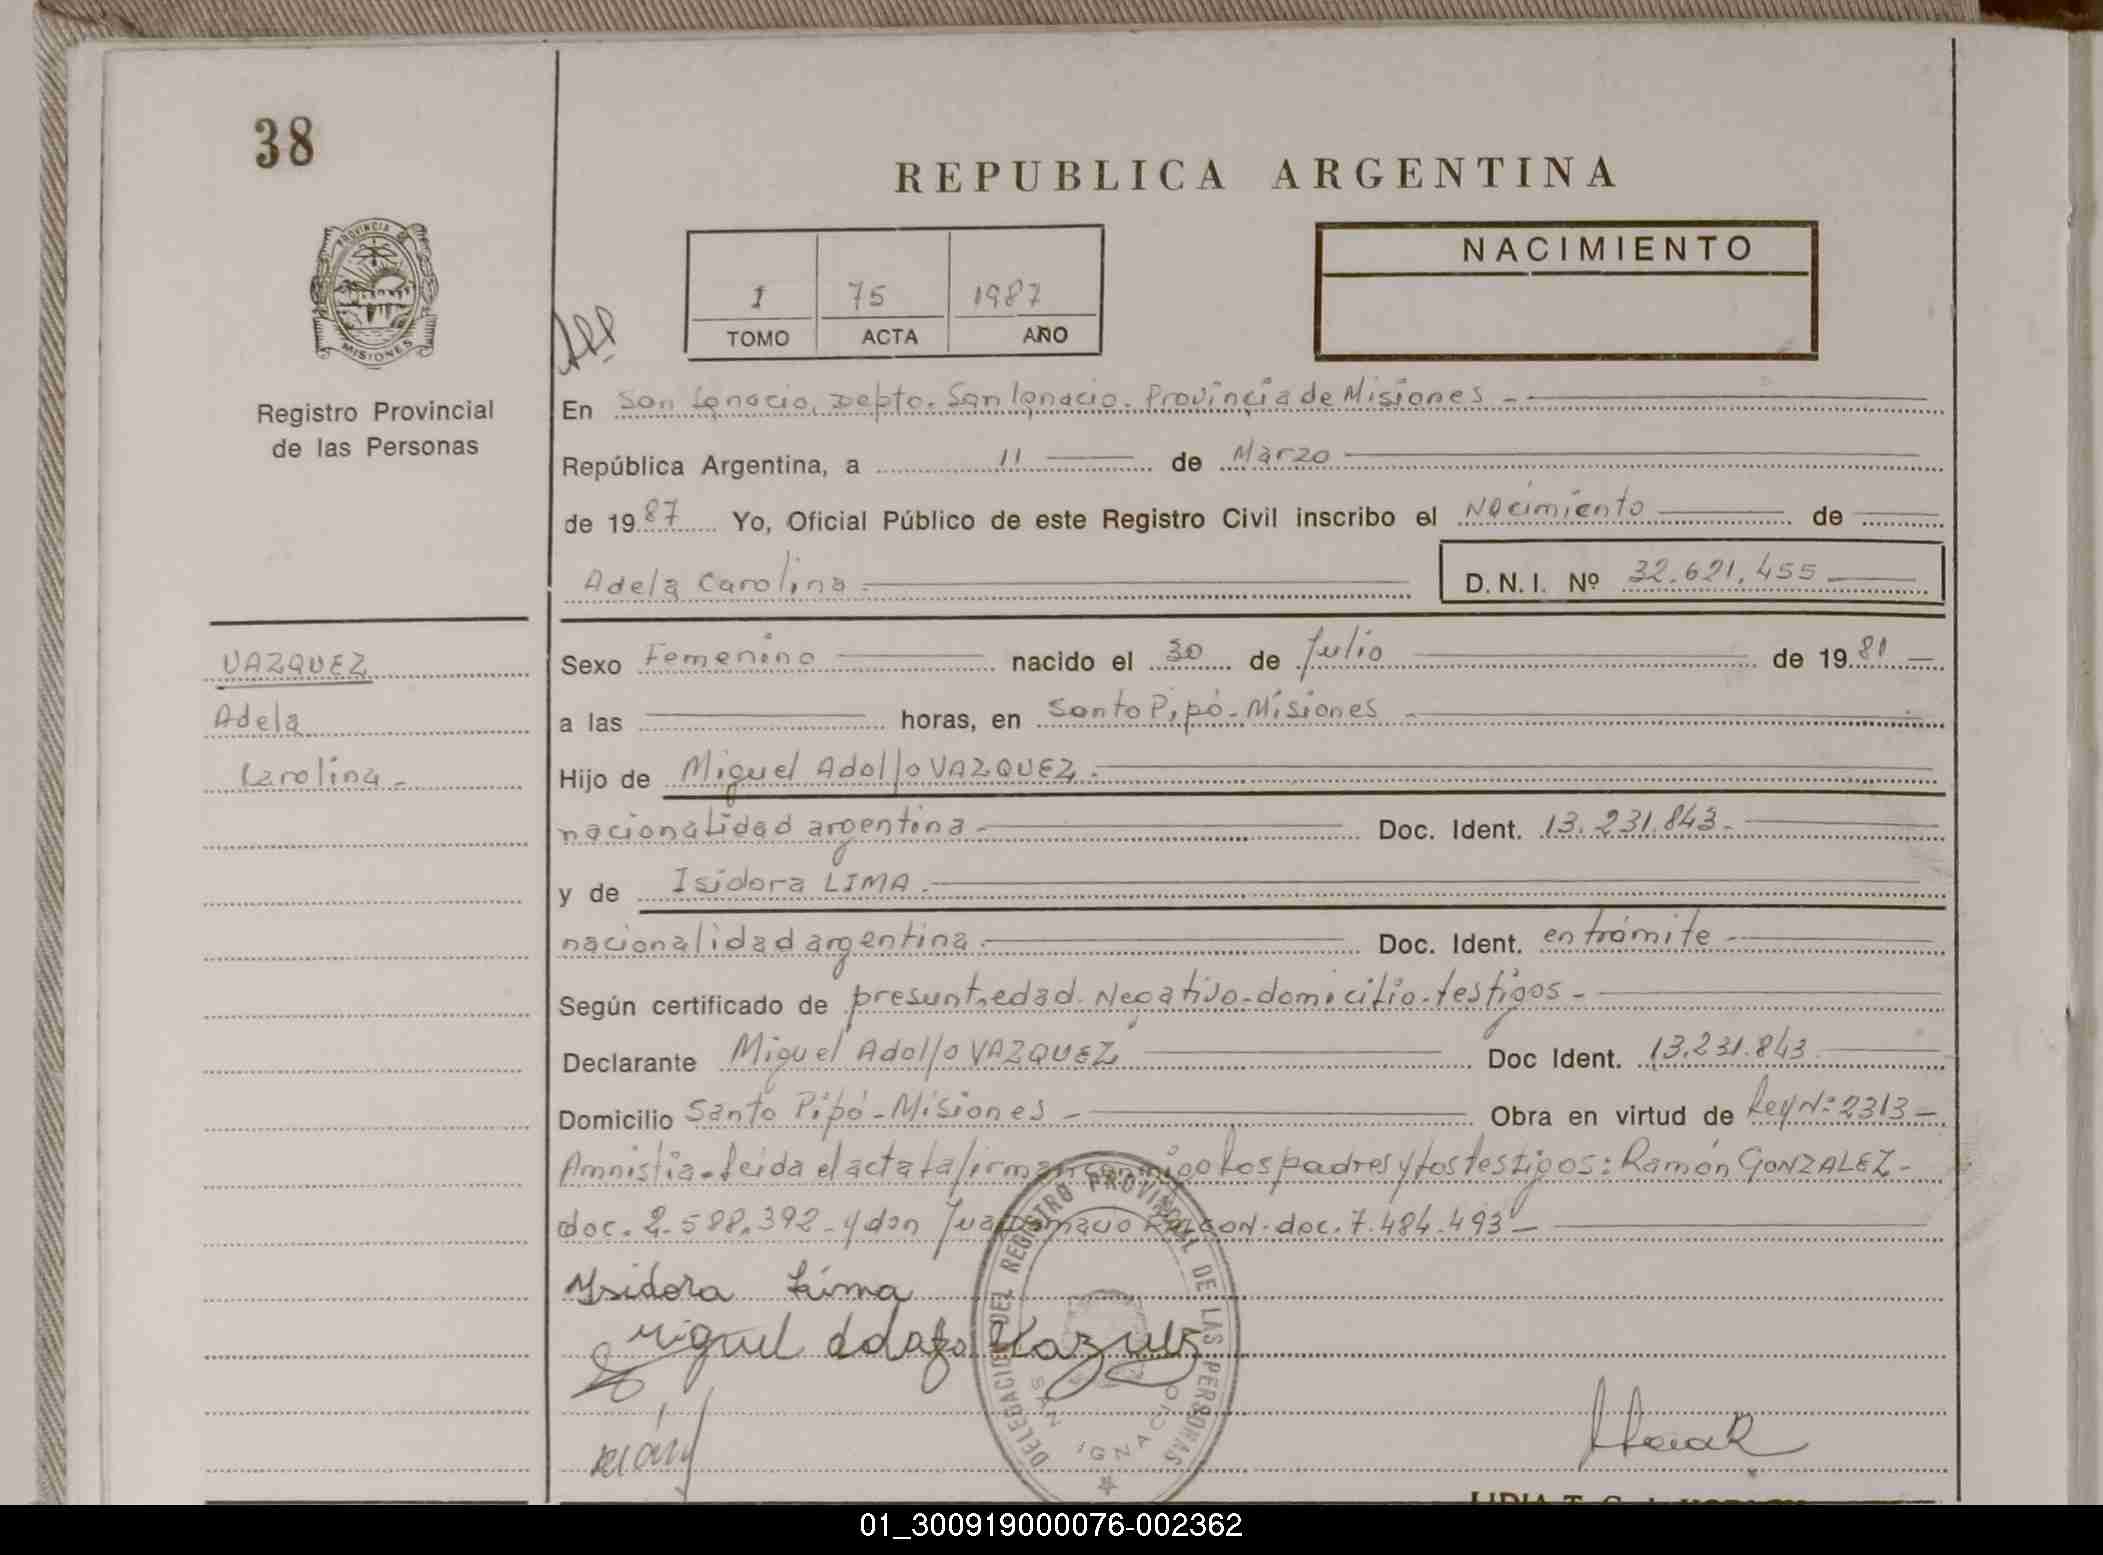 38
REPUBLICA ARGENTINA
PROVINCIA DE
MISIONES
Registro Provincial
de las Personas
1 75 1987
TOMO ACTA AÑO
NACIMIENTO
En San Ignacio, Depto. San Ignacio. Provincia de Misiones -
República Argentina, a 11 de Marzo
de 1987 Yo, Oficial Público de este Registro Civil inscribo el Nacimiento de
Adela Carolina - D.N.I. Nº 32.621.455
VAZQUEZ
Adela
Carolina -
Sexo Femenino nacido el 30 de Julio de 1981 -
a las horas, en Santo Pipó - Misiones -
Hijo de Miguel Adolfo VAZQUEZ.
nacionalidad argentina - Doc. Ident. 13.231.843 -
y de Isidora LIMA.
nacionalidad argentina - Doc. Ident. en trámite -
Según certificado de presunt.edad. Negativo - domicilio - testigos -
Declarante Miguel Adolfo VAZQUEZ Doc Ident. 13.231.843
Domicilio Santo Pipó - Misiones - Obra en virtud de Ley Nº 2313 -
Amnistia - Leida el acta la firman conmigo los padres y los testigos: Ramón GONZALEZ -
doc. 2.588.392 - y don Juan doc. 7.484.493 -
Isidora Lima
Miguel Adolfo Vazquez
DELEGACION DEL REGISTRO PROVINCIAL DE LAS PERSONAS
SAN IGNACIO
01_300919000076-002362